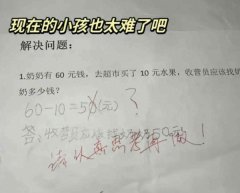 现在的小孩也太难了吧
解决问题：
1.奶奶有 60 元钱，去超市买了 10 元水果，收营员应该找奶
奶多少钱？
60-10=50(元)
?
答：收营员应该找奶奶50元
请认真思考再做！